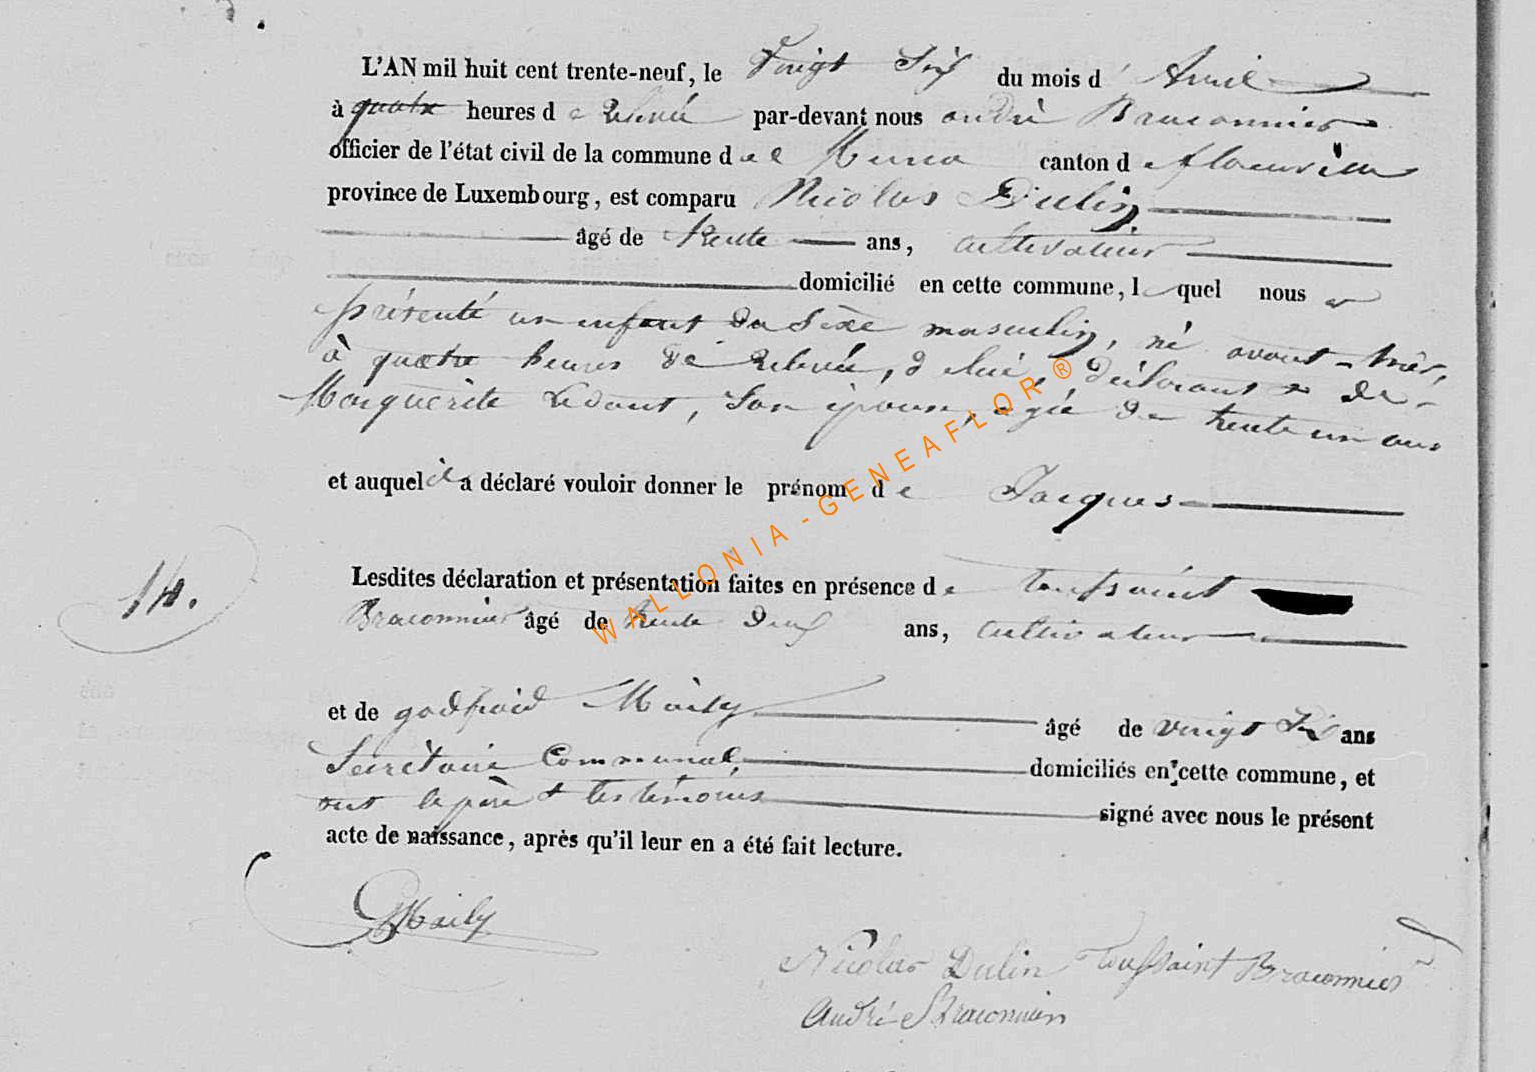 L'AN mil huit cent trente-neuf, le Vingt Six du mois d' Avril
à quatre heures de Relevée par-devant nous andré Braconnier
officier de l'état civil de la commune de Muno canton de florenville
province de Luxembourg, est comparu Nicolas Dulin
âgé de trente ans, cultivateur
domicilié en cette commune, lequel nous a
présenté un enfant du Sexe masculin, né avant-hier,
à quatre heures de Relevée, de lui, déclarant et de
Marguerite Ledant, son épouse, agée de trente un ans
et auquel il a déclaré vouloir donner le prénom de Jacques
14.
Lesdites déclaration et présentation faites en présence de toussaint
Braconnier âgé de trente deux ans, cultivateur
et de godfroid Maily âgé de vingt Six ans
Secrétaire Communal, domiciliés en cette commune, et
ont le père et les témoins signé avec nous le présent
acte de naissance, après qu'il leur en a été fait lecture.
GMaily
Nicolas Dulin Toussaint Braconnier
André Braconnier
WALLONIA-GENEAFLOR®